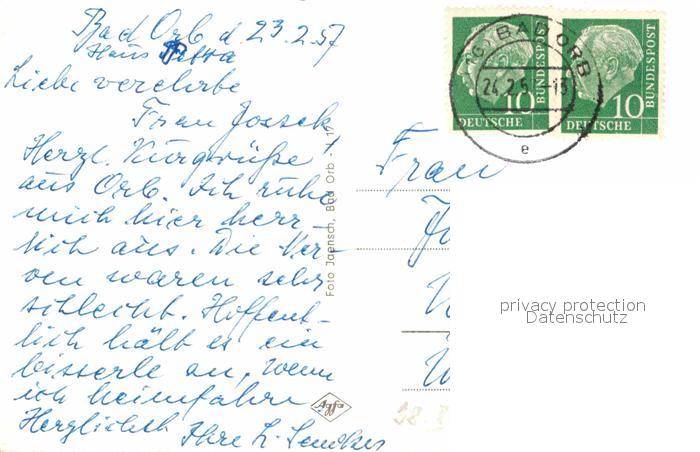 Bad Orb d. 23.2.57
Haus
Liebe verehrte
Frau Jossek
Herzl. Kurgrüße
aus Orb. Ich ruhe
mich hier herr-
lich aus. Die Ner-
ven waren sehr
schlecht. Hoffent-
lich hält es ein
bisserle an, wenn
ich heimfahre
Herzlichst Ihre L.
Foto Jaensch, Bad Orb
Agfa
Frau
BAD ORB
24.2.5 -13
e
10 BUNDESPOST
DEUTSCHE
10 BUNDESPOST
DEUTSCHE
privacy protection
Datenschutz